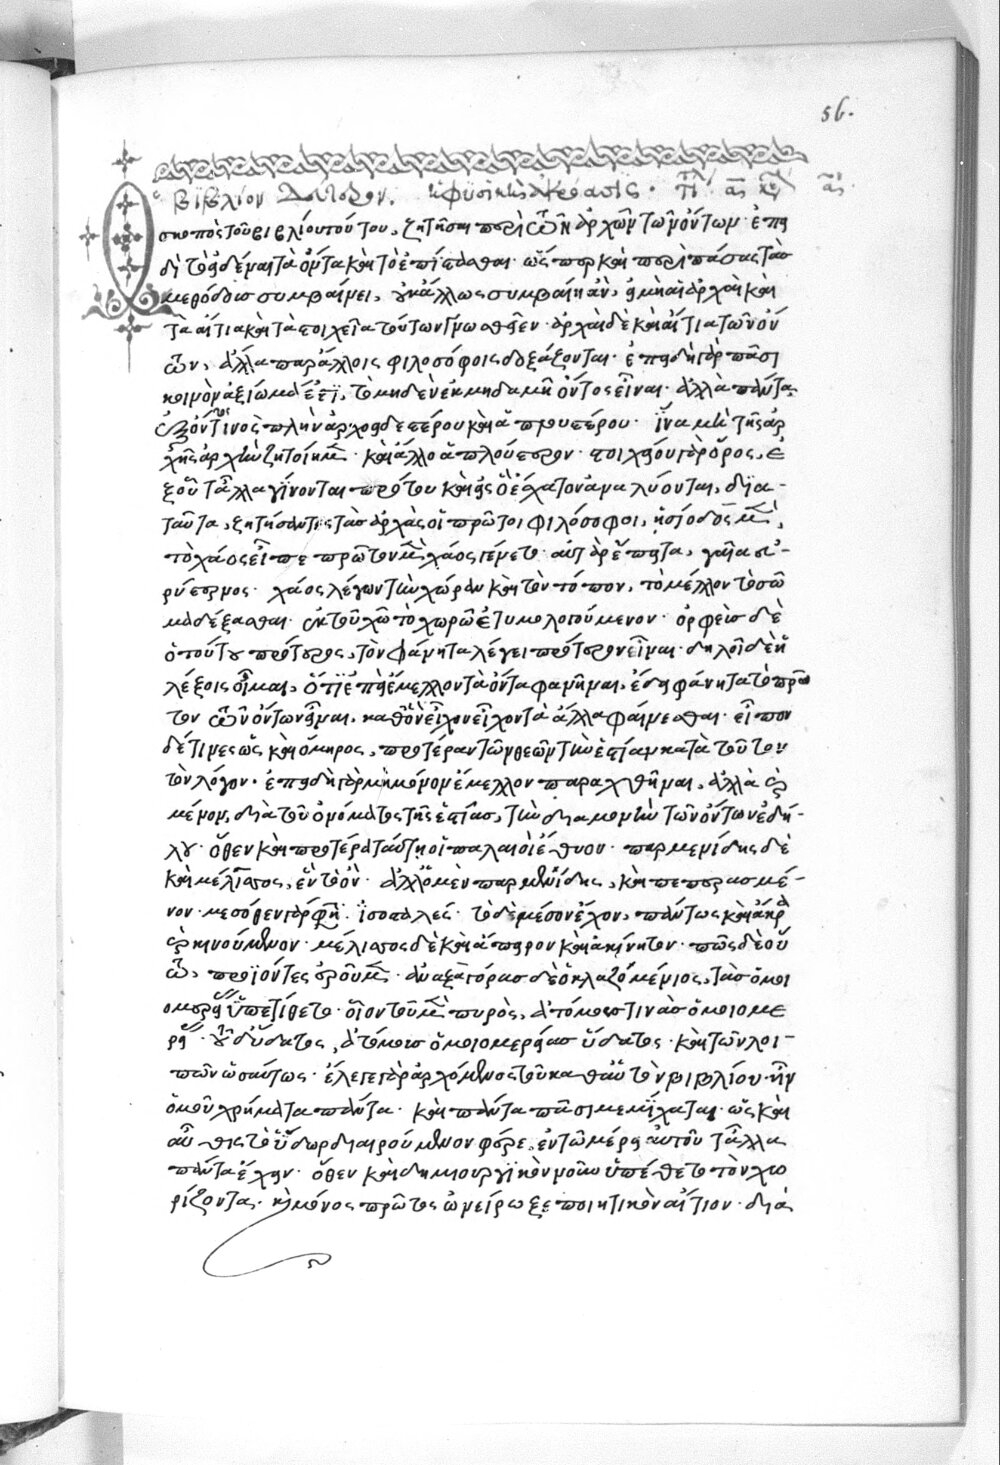 56.
βιβλίον δεύτερον. ἡ φυσικὴ ἀκρόασις.
Ὁ
σκοπὸς τοῦ βιβλίου τούτου, ζητῆσαι περὶ τῶν ἀρχῶν τῶν ὄντων· ἐπει
δὴ τὸ εἰδέναι τὰ ὄντα καὶ τὸ ἐπίστασθαι ὥσπερ καὶ περὶ πάσας τὰς
μεθόδους συμβαίνει, οὐκ ἄλλως συμβαίη ἂν, εἰ μὴ αἱ ἀρχαὶ καὶ
τὰ αἴτια καὶ τὰ στοιχεῖα τούτων γνωσθεῖεν· ἀρχαὶ δὲ καὶ αἴτια τῶν ὄν
των, ἄλλα παρ' ἄλλοις φιλοσόφοις δοξάζονται· ἐπειδὴ γὰρ πᾶσι
κοινὸν ἀξίωμά ἐστι, τὸ μηδὲν ἐκ μηδαμῆ ὄντος εἶναι· ἀλλὰ πάντα
ἐξ ὄντος τινὸς πλὴν ἀρχοειδεστέρου καὶ ἁπλουστέρου· ἵνα μὴ τῆς ἀρ
χῆς ἀρχὴν ζητοίημεν· καὶ ἄλλο ἁπλούστερον· στοιχείου γὰρ ὅρος, ἐ
ξ οὗ τἆλλα γίνονται πρώτου καὶ εἰς ὃ ἔσχατον ἀναλύονται, διὰ
ταῦτα, ζητήσαντες τὰς ἀρχὰς οἱ πρῶτοι φιλόσοφοι, ἡσίοδος μὲν,
τὸ χάος εἶπε πρῶτον μὲν χάος γένετ· αὐτὰρ ἔπειτα, γαῖα εὐ-
ρύστερνος· χάος λέγων τὴν χώραν καὶ τὸν τόπον, τὸ μέλλον τὰ σώ
ματα δέξασθαι· ἐκ τοῦ χῶ τὸ χωρῶ ἐτυμολογούμενον· ὀρφεὺς δὲ
ὁ τούτου πρότερος, τὸν φάνητα λέγει πρότερον εἶναι· δηλοῖ δὲ ἡ
λέξις οἶμαι, ὅτι ἐπεὶ ἔμελλον τὰ ὄντα φανῆναι, ἔδει φάνητα τὸ πρῶ
τον τῶν ὄντων εἶναι, καθ' ὃν εἶχον εἶχον τὰ ἄλλα φαίνεσθαι· εἶπον
δέ τινες ὡς καὶ ὅμηρος, προτέραν τῶν θεῶν τὴν ἑστίαν κατὰ τοῦτον
τὸν λόγον· ἐπειδὴ γὰρ μὴ μόνον ἔμελλον παραχθῆναι, ἀλλὰ καὶ
μένειν, διὰ τοῦ ὀνόματος τῆς ἑστίας, τὴν διαμονὴν τῶν ὄντων ἐδή-
λου· ὅθεν καὶ προτέρα ταύτῃ οἱ παλαιοὶ ἔθυον· παρμενίδης δὲ
καὶ μέλισσος, ἓν τὸ ὄν· ἀλλ' ὁ μὲν παρμενίδης, καὶ πεπερασμέ-
νον· μεσόθεν γάρ φησιν ἰσοπαλές· τὸ δὲ μέσον ἔχον, πάντως καὶ ἄκρα
καὶ κινούμενον· μέλισσος δὲ καὶ ἄπειρον καὶ ἀκίνητον· πῶς δὲ οὕ
τω, προϊόντες ἐροῦμεν· ἀναξαγόρας δὲ ὁ κλαζομένιος, τὰς ὁμοι
ομερείας ὑπετίθετο· οἷον τοῦ μὲν πυρὸς, ἀτόμους τινὰς ὁμοιομε
ρείας· τοῦ δ' ὕδατος, ἀτόμους ὁμοιομερείας ὕδατος· καὶ τῶν λοι-
πῶν ὡσαύτως· ἔλεγε γὰρ ἀρχόμενος τοῦ καθ' αὑτὸν βιβλίου· ἦν
ὁμοῦ χρήματα πάντα· καὶ πάντα πᾶσι μεμίχαται· ὡς καὶ
αὖθις τὸ ὕδωρ διαιρούμενον φέρε, ἐν τῷ μέρει αὐτοῦ τἆλλα
πάντα ἔχειν· ὅθεν καὶ δημιουργικὸν νοῦν ὑπέθετο τὸν χω
ρίζοντα· καὶ μόνος πρῶτος ὠνείρωξε ποιητικὸν αἴτιον· διὰ